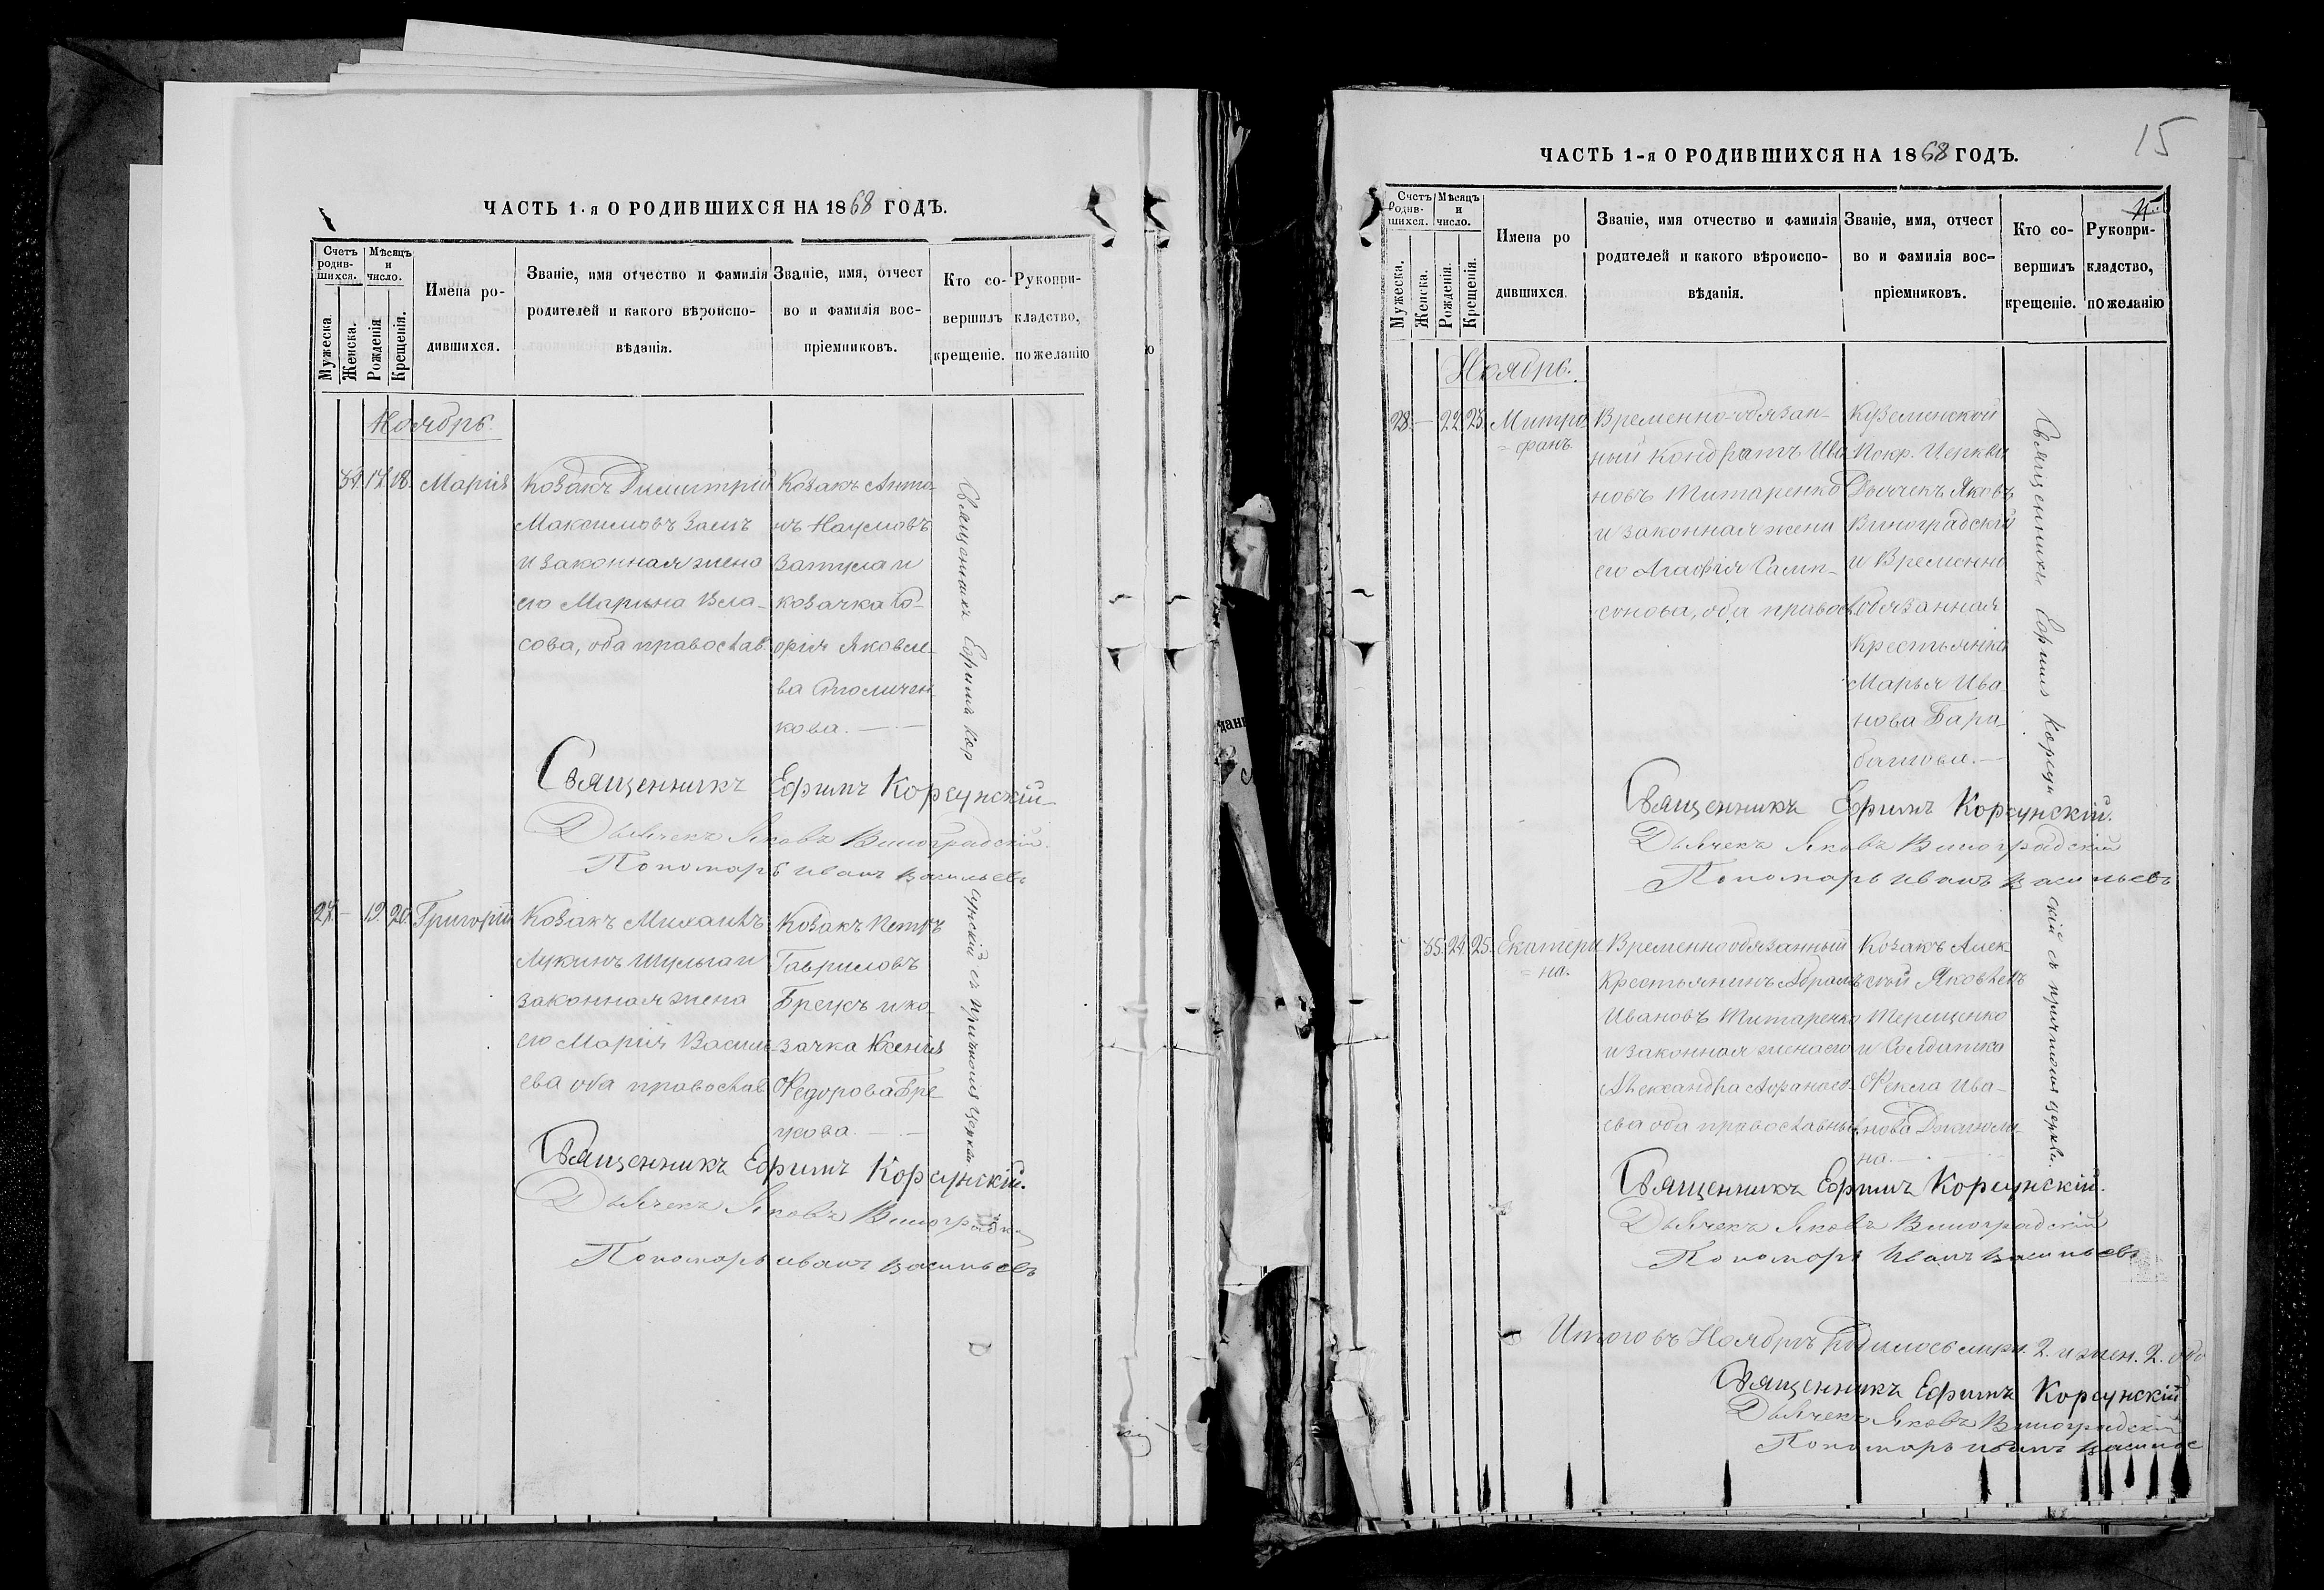 ЧАСТЬ 1-я О РОДИВШИХСЯ НА 1868 ГОДЪ.
Счетъ родив-шихся.
Мѣсяцъ и число.
Мужеска.
Женска.
Рожденія.
Крещенія.
Имена ро-
дившихся.
Званіе, имя отчество и фамилія
родителей и какого вѣроиспо-
вѣданія.
Званіе, имя, отчест
во и фамилія вос-
пріемниковъ.
Кто со-
вершилъ
крещеніе.
Рукопри-
кладство,
по желанію
Ноябрь.
34. 17. 18. Марія
Козакъ Димитрій
Максимовъ Заецъ
и законная жена
его Марьяна Вла-
сова, оба православ.
Козакъ Анто-
нъ Наумовъ
Затула и
козачка Со-
фія Яковле-
ва
кова.
Священникъ Ефимъ Кор
сунскій съ причтомъ церкви
Священникъ Ефимъ Корсунскій
Дьячекъ Яковъ Виноградскій.
Пономарь Иванъ Васильевъ
27. – 19. 20. Григорій
Козакъ Михаилъ
Лукинъ Шульга и
законная жена
его Марія Василь-
ева оба православ
Козакъ Петръ
Гавриловъ
Бреусъ и ко-
зачка Ксенія
Федорова Бре-
усова.
Священникъ Ефимъ Корсунскій.
Дьячекъ Яковъ Виноградскій
Пономарь Иванъ Васильевъ
15
ЧАСТЬ 1-я О РОДИВШИХСЯ НА 1868 ГОДЪ.
Счетъ Родив-шихся.
Мѣсяцъ и число.
Мужеска.
Женска.
Рожденія.
Крещенія.
Имена ро
дившихся.
Званіе, имя отчество и фамилія
родителей и какого вѣроиспо-
вѣданія.
Званіе, имя, отчест
во и фамилія вос-
пріемниковъ.
Кто со-
вершилъ
крещеніе.
Рукопри-
кладство,
по желанію
Ноябрь.
28. – 22. 23. Митро
=фанъ
Временно-обязан-
ный Кондратъ Ива
новъ Титаренко
и законная жена
его Агафія Самп-
сонова, оба правосл
Покр. Церкви
Дьячекъ Яковъ
Виноградскій
и Временно
обязанная
крестьянка
Марья Ива-
нова
Священникъ Ефимъ Корсун
скій съ причтомъ церкви.
Священникъ Ефимъ Корсунскій.
Дьячекъ Яковъ Виноградскій
Пономарь Иванъ Васильевъ
35. 24. 25. Екатери
=на.
Временнообязанный
Крестьянинъ Абрамъ
Ивановъ Титаренко
и законная жена его
Александра Афанась-
ева оба православные
Козакъ Алек
сѣй Яковлевъ
Терещенко
и Солдатка
Фекла Ива-
нова
на.
Священникъ Ефимъ Корсунскій.
Дьячекъ Яковъ Виноградскій
Пономарь Иванъ Васильевъ
Итого въ Ноябрѣ родилось муж. 2. и жен. 2. обо
Священникъ Ефимъ Корсунскій
Дьячекъ Яковъ Виноградскій
Пономарь Иванъ Василье